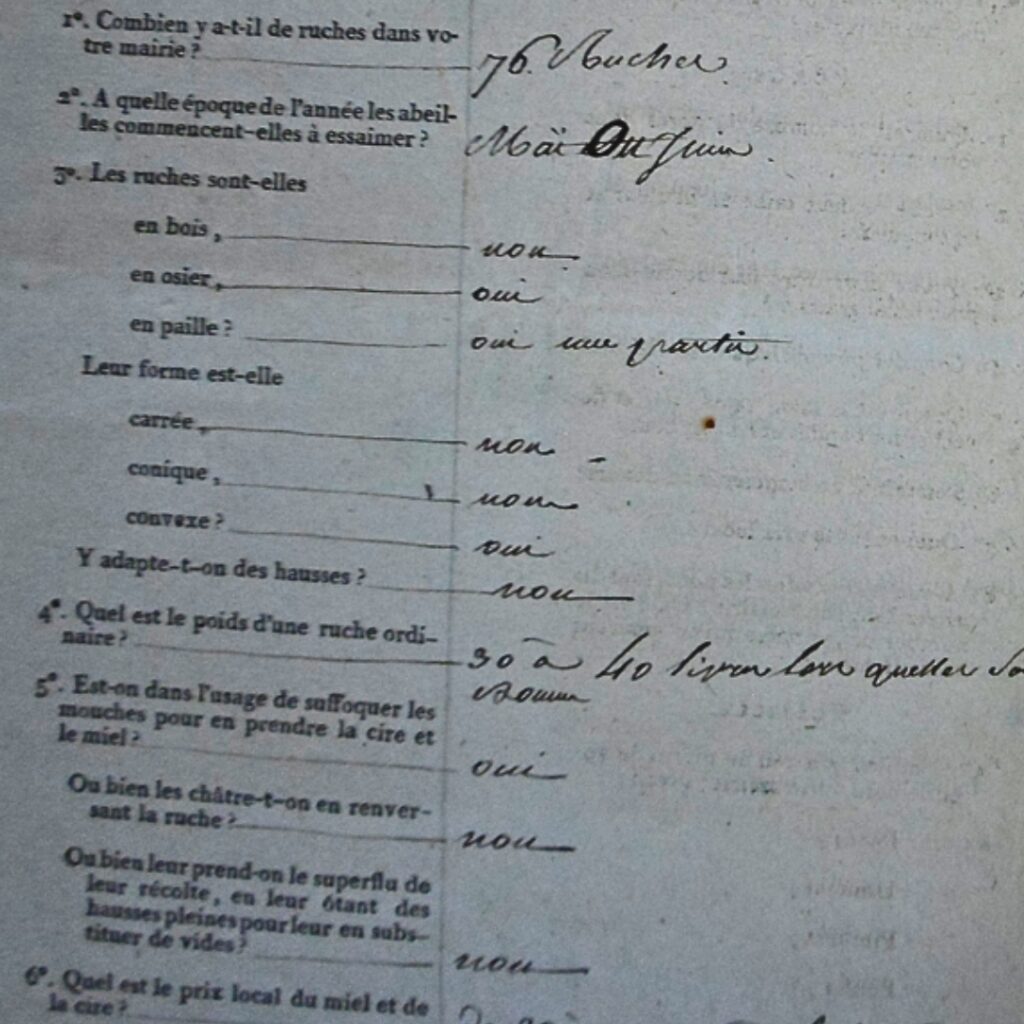 1º. Combien y a-t-il de ruches dans vo-
tre mairie ? 76. Ruches
2º. A quelle époque de l'année les abeil-
les commencent-elles à essaimer ? Maï Ou Juin.
3º. Les ruches sont-elles
en bois, non
en osier, oui
en paille ? oui une partie.
Leur forme est-elle
carrée, non
conique, non
convexe ? oui
Y adapte-t-on des hausses ? non
4º. Quel est le poids d'une ruche ordi-
naire ? 30 à 40 livres lors quelles
5º. Est-on dans l'usage de suffoquer les
mouches pour en prendre la cire et
le miel ? oui
Ou bien les châtre-t-on en renver-
sant la ruche ? non
Ou bien leur prend-on le superflu de
leur récolte, en leur ôtant des
hausses pleines pour leur en subs-
tituer de vides ? non
6º. Quel est le prix local du miel et de
la cire ?